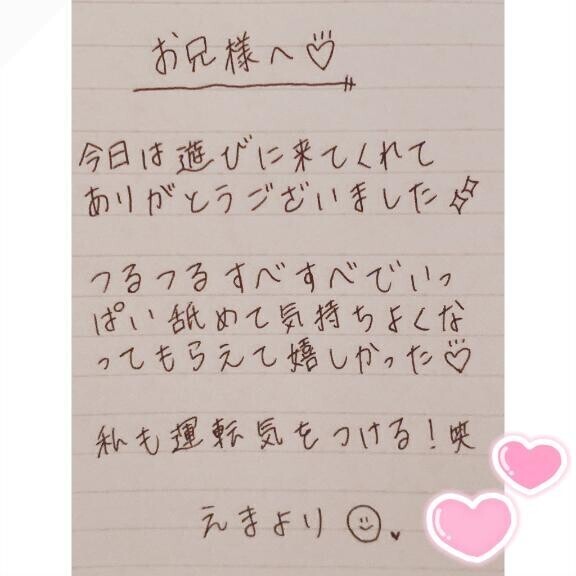 お兄様へ♡
今日は遊びに来てくれて
ありがとうございました
つるつるすべすべでいっ
ぱい舐めて気持ちよくな
ってもらえて嬉しかった♡
私も運転気をつける！笑
えまより